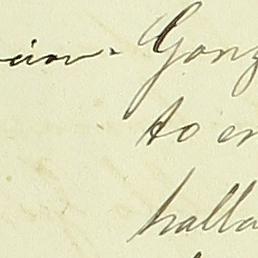 cion. Gonz
to en
halla